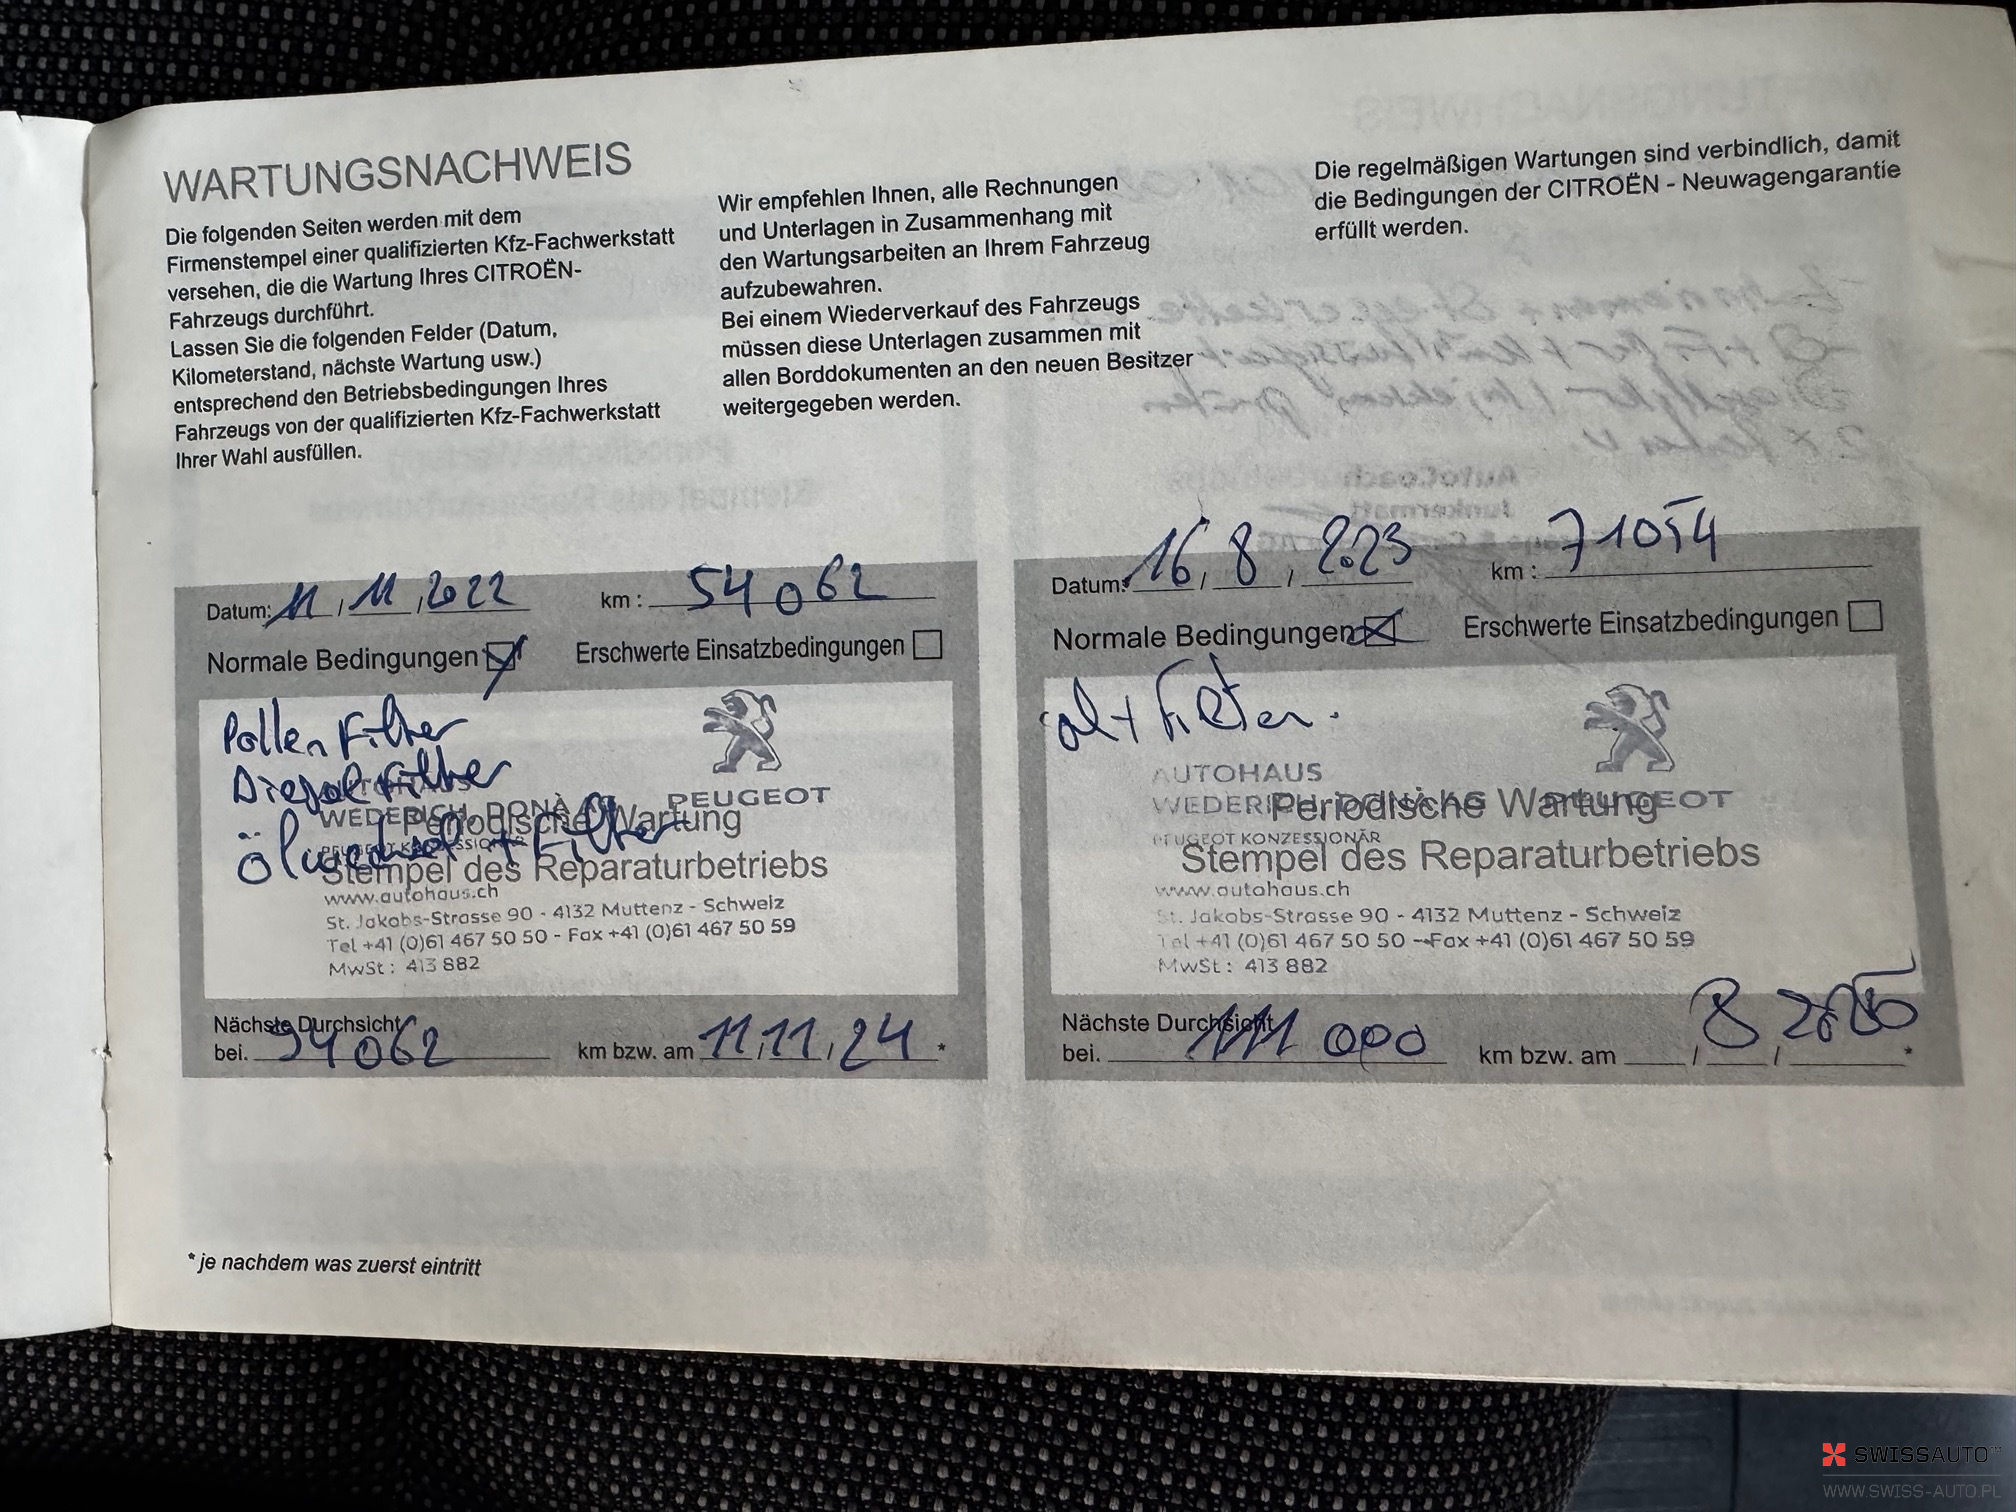 WARTUNGSNACHWEIS
Die folgenden Seiten werden mit dem
Firmenstempel einer qualifizierten Kfz-Fachwerkstatt
versehen, die die Wartung Ihres CITROËN-
Fahrzeugs durchführt.
Lassen Sie die folgenden Felder (Datum,
Kilometerstand, nächste Wartung usw.)
entsprechend den Betriebsbedingungen Ihres
Fahrzeugs von der qualifizierten Kfz-Fachwerkstatt
Ihrer Wahl ausfüllen.
Wir empfehlen Ihnen, alle Rechnungen
und Unterlagen in Zusammenhang mit
den Wartungsarbeiten an Ihrem Fahrzeug
aufzubewahren.
Bei einem Wiederverkauf des Fahrzeugs
müssen diese Unterlagen zusammen mit
allen Borddokumenten an den neuen Besitzer
weitergegeben werden.
Die regelmäßigen Wartungen sind verbindlich, damit
die Bedingungen der CITROËN - Neuwagengarantie
erfüllt werden.
Datum: 11 / 11 / 2022 km : 54062
Normale Bedingungen Erschwerte Einsatzbedingungen
Pollen Filter
Diesel Filter
AUTOHAUS
WEDERICH, DONÀ AG PEUGEOT
Periodische Wartung
Ölwechsel + Filter
PEUGEOT KONZESSIONÄR
Stempel des Reparaturbetriebs
www.autohaus.ch
St. Jakobs-Strasse 90 - 4132 Muttenz - Schweiz
Tel +41 (0)61 467 50 50 - Fax +41 (0)61 467 50 59
MwSt : 413 882
Nächste Durchsicht
bei. 94062 km bzw. am 11 / 11 / 24 *
Datum: 16 / 8 / 2023 km : 71054
Normale Bedingungen Erschwerte Einsatzbedingungen
öl + Filter.
AUTOHAUS
WEDERICH, DONÀ AG PEUGEOT
Periodische Wartung
PEUGEOT KONZESSIONÄR
Stempel des Reparaturbetriebs
www.autohaus.ch
St. Jakobs-Strasse 90 - 4132 Muttenz - Schweiz
Tel +41 (0)61 467 50 50 - Fax +41 (0)61 467 50 59
MwSt : 413 882
Nächste Durchsicht
bei. 111 000 km bzw. am / 8 / 2025 *
* je nachdem was zuerst eintritt
SWISSAUTO
WWW.SWISS-AUTO.PL